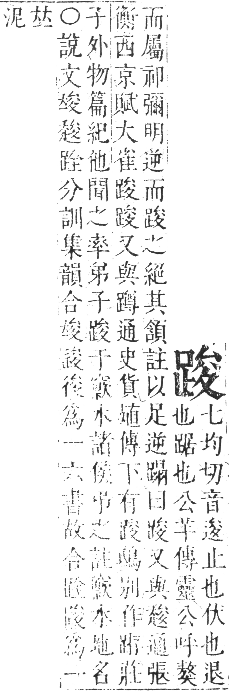 踆七均切音逡止也伏也退
也踞也公羊傳靈公呼獒
而屬祁彌明逆而踆之絕其頷註以足逆蹋曰踆又與逡通張
衡西京賦大雀踆踆又與蹲通史貨殖傳下有踆鴟別作踤莊
子外物篇紀他聞之率弟子踆于窾水諸侯弔之註窾水地名
○說文夋逡踆分訓集韻合夋踆後為一六書故合踆為一
泥𡘋